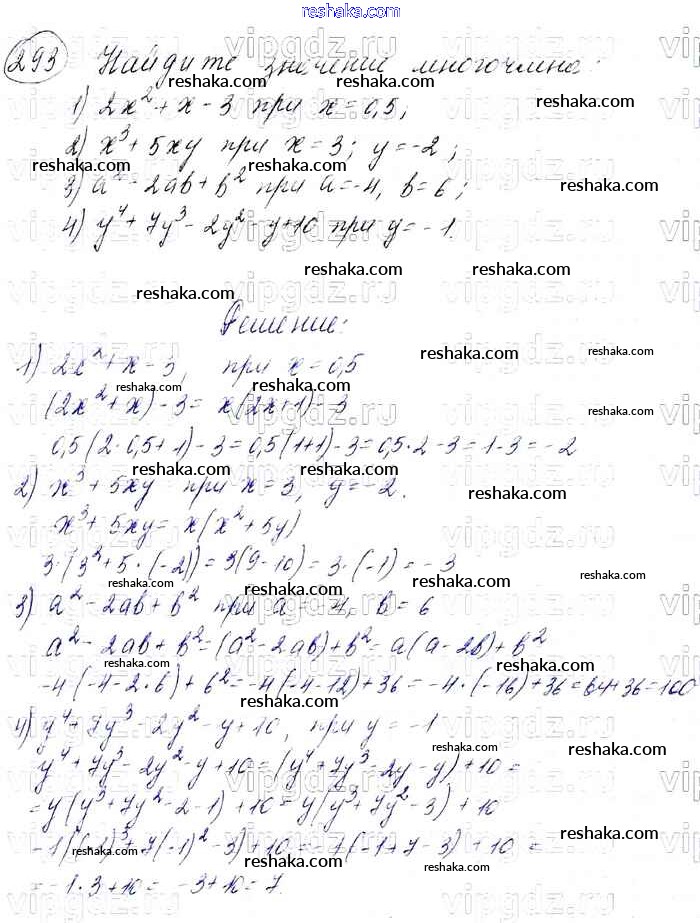 reshaka.com
293 Найдите значение многочлена:
1) 2x² + x - 3 при x = 0,5;
2) x³ + 5xy при x = 3; y = -2;
3) a² - 2ab + b² при a = -4, b = 6;
4) y⁴ + 7y³ - 2y² - y + 10 при y = -1.
Решение:
1) 2x² + x - 3, при x = 0,5
(2x² + x) - 3 = x(2x+1) - 3
0,5(2·0,5+1) - 3 = 0,5(1+1) - 3 = 0,5·2 - 3 = 1 - 3 = -2
2) x³ + 5xy при x = 3, y = -2.
x³ + 5xy = x(x² + 5y)
3·(3² + 5·(-2)) = 3(9-10) = 3·(-1) = -3
3) a² - 2ab + b² при a = -4, b = 6
a² - 2ab + b² = (a² - 2ab) + b² = a(a - 2b) + b²
-4(-4-2·6) + 6² = -4(-4-12) + 36 = -4·(-16) + 36 = 64+36 = 100
4) y⁴ + 7y³ - 2y² - y + 10, при y = -1
y⁴ + 7y³ - 2y² - y + 10 = (y⁴ + 7y³ - 2y - y) + 10 =
= y(y³ + 7y² - 2 - 1) + 10 = y(y³ + 7y² - 3) + 10
-1((-1)³ + 7(-1)² - 3) + 10 = -1(-1+7-3) + 10 =
= -1·3+10 = -3+10 = 7.